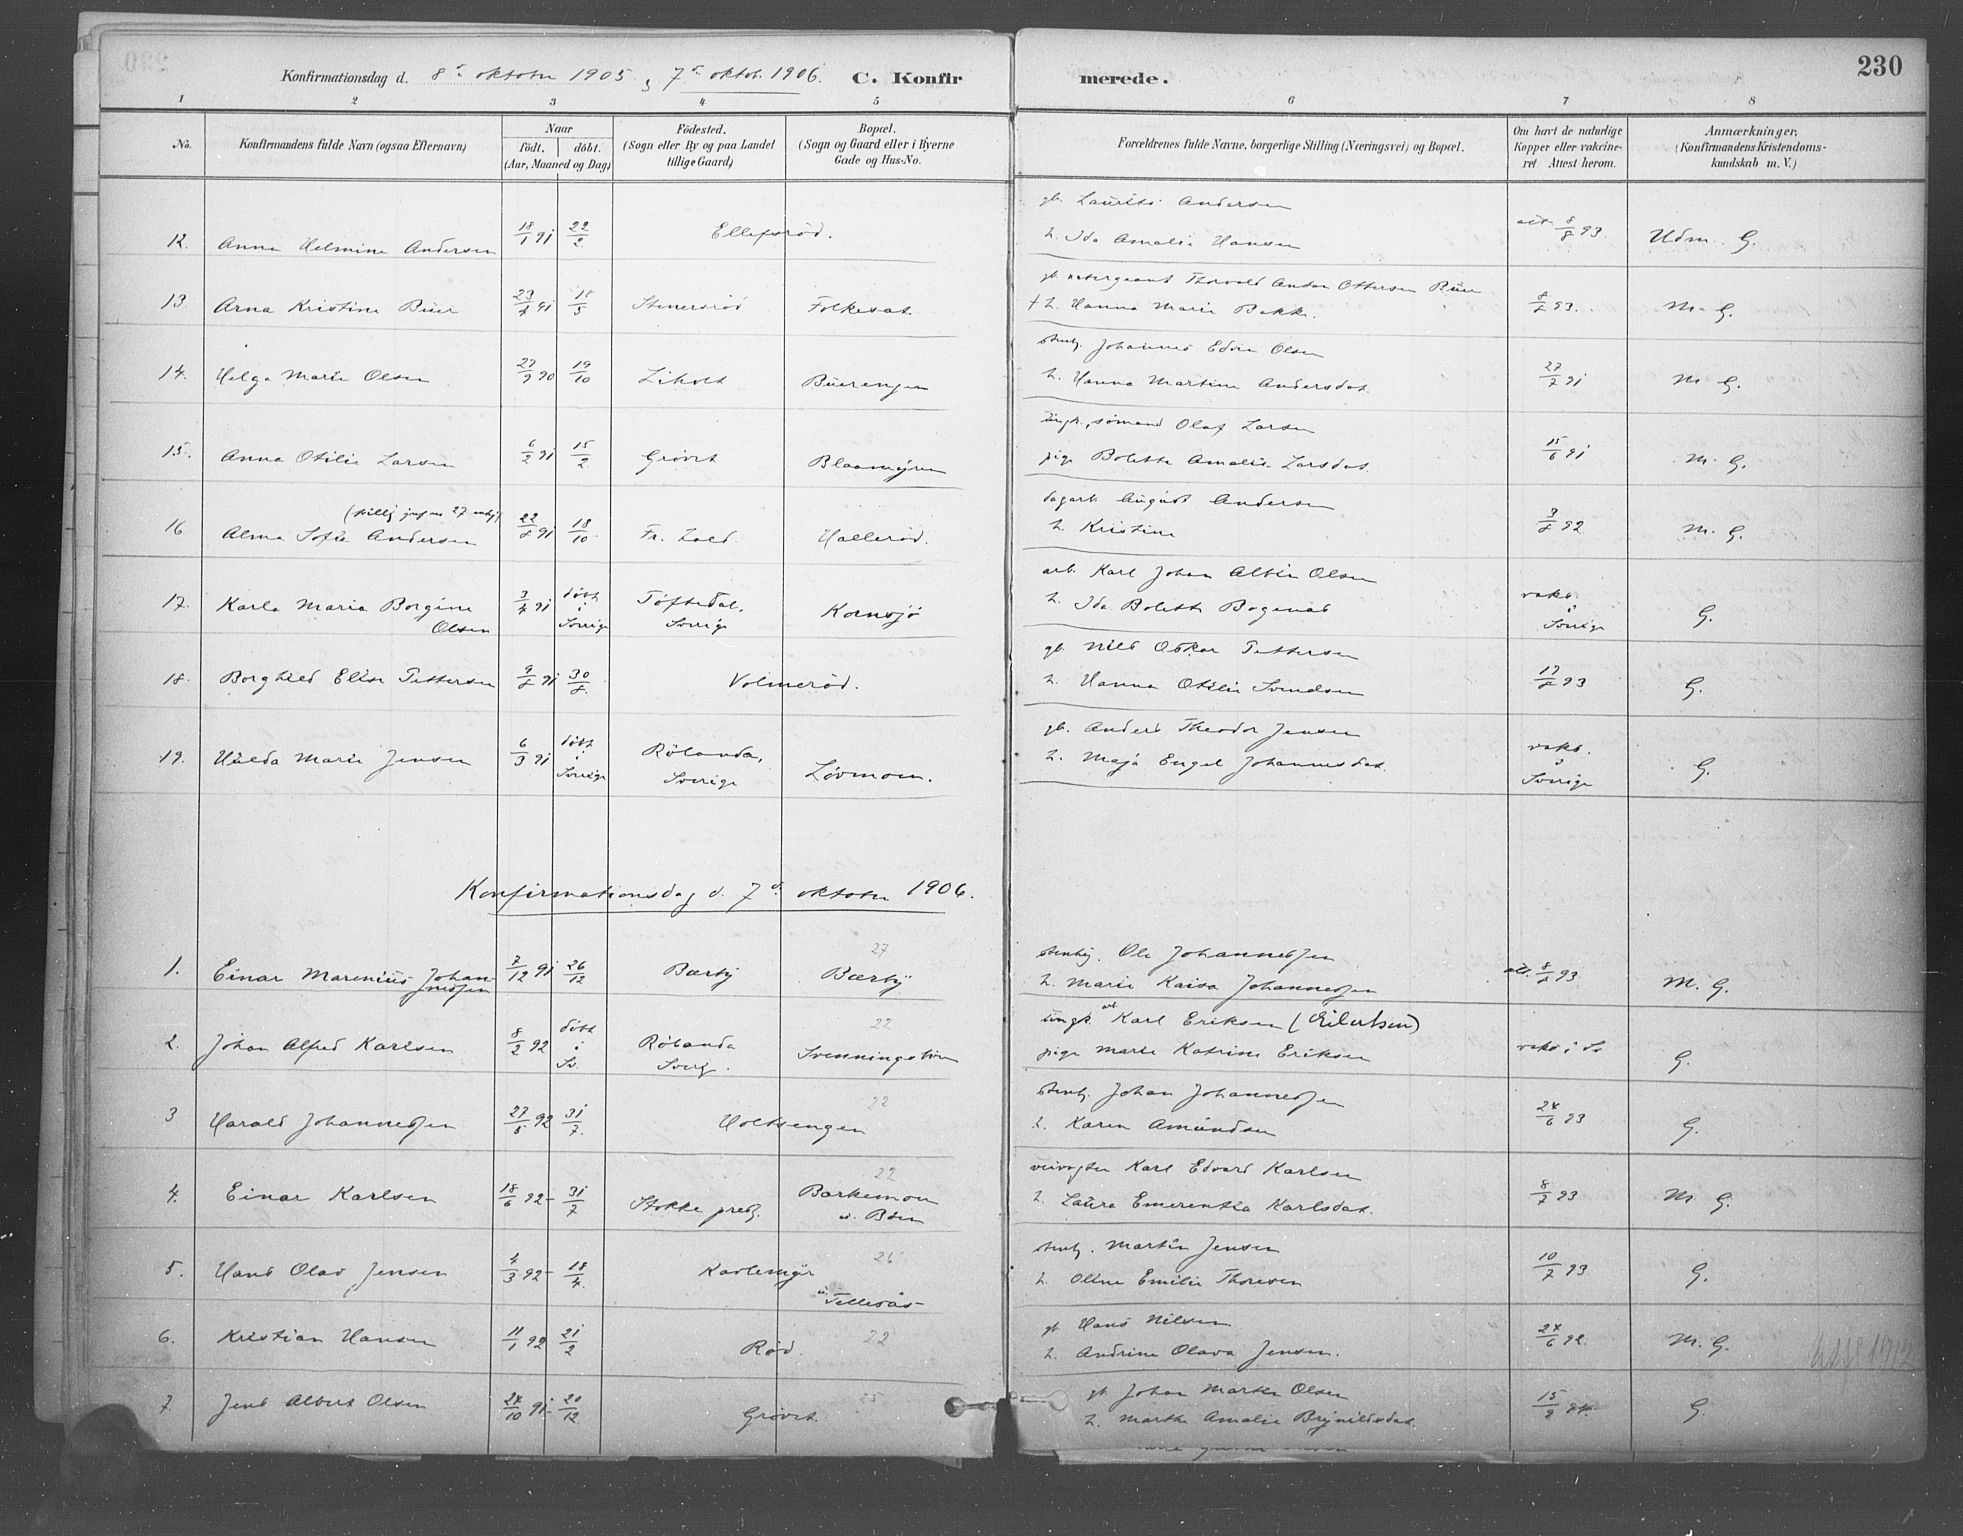 230
Konfirmationsdag d. 8de oktober 1905 og 7de oktob. 1906. C. Konfirmerede.
1 2 3 4 5 6 7 8
No. Konfirmandens fulde Navn (ogsaa Efternavn) Naar født. døbt. (Aar, Maaned og Dag) Fødested. (Sogn eller By og paa Landet tillige Gaard) Bopæl. (Sogn og Gaard eller i Byerne Gade og Hus-No. Forældrenes fulde Navne, borgerlige Stilling (Næringsvei) og Bopæl. Om havt de naturlige Kopper eller vakcineret Attest herom. Anmærkninger. (Konfirmandens Kristendomskundskab m. V.)
gb. Laurits Andersen
12. Anna Helmine Andersen 18/1 91 22/2 Ellefsrød. h. Ida Amalie Hansen att 8/8 93. Udm. G.
Thorvald Anton Ottersen Buer
13 Arna Kristine Buer 23/4 91 18/5 Stenersrød Folkesat. † h. Hanna Marie Bakke. 8/8 93. M. G.
stenh. Johannes Edvin Olsen
14. Helga Marie Olsen 27/9 90 19/10 Liholt Buerengen h. Hanna Martine Andersdat. 27/7 91 M G.
ungk., sømand Olaf Larsen
15. Anna Otilie Larsen 6/2 91 15/2 Grövet Blaamyren pige Bolette Amalie Larsdat. 15/6 91 M. G.
dagarb. August Andersen
16 Alma Sofie Andersen 22/8 91 18/10. Fr. Hallerød. h. Kristine 3/8 92 M. G.
arb. Karl Johan Albin Olsen
17. Karla Maria Borgine Olsen 3/4 91 døbt i Sverige Töftedal, Sverige Kornsjø h. Ida Bolette vaks. Sverige G.
gb. Nils Oskar Pettersen
18. Borghild Elise Pettersen 9/8 91 30/8. Volmerød. h. Hanna Otilie Svendsen 17/8 93 G.
gb. Anders Theodor Jensen
19. Hulda Marie Jensen 6/3 91 døbt i Sverige Rølanda, Sverige Løvmoen. h. Maja Engel Johannesdat. vaks. Sverige G.
Konfirmationsdag d. 7de oktober 1906.
27 stenh. Ole Johannessen
1. Einar Marenius Johannessen 7/12 91 26/12 Bærby Bærby h. Marie Kaisa Johannessen att. 8/8 93 M. G.
22 ungk. arb. Karl Eriksen (Eilertsen)
2. Johan Alfred Karlsen 8/2 92 døbt i Sv. Rølanda Sverig. pige Marie Katrine Eriksen vaks i Sv G.
22 stenh. Johan Johannessen
3 Harald Johannessen 27/5 92 31/7. Holtsengen h. Karen Amundsen 24/6 93 G.
22 veivogter Karl Edvard Karlsen
4. Einar Karlsen 18/6 92- 31/7 Stokke prestg. Barkemoen u. Bøen h. Laura Emerentia Karlsdat. 8/7 93 M. G.
26 stenh. Martin Jensen
5. Hans Olav Jensen 4/3 92- 18/4. Kavlemyr u. Tellesås- h. Oline Emilie Thoresen 10/7 93 G.
22 gb Hans Nilsen
6. Kristian Hansen 11/1 92 21/2 Rød. h. Andrine Olava Jensen. 24/6 92 M. G.
25 gb Johan Martin Olsen
7. Jens Albert Olsen 24/10 91- 20/12 Grövet h. Marthe Amalie Brynildsdat. 15/9 94. G.